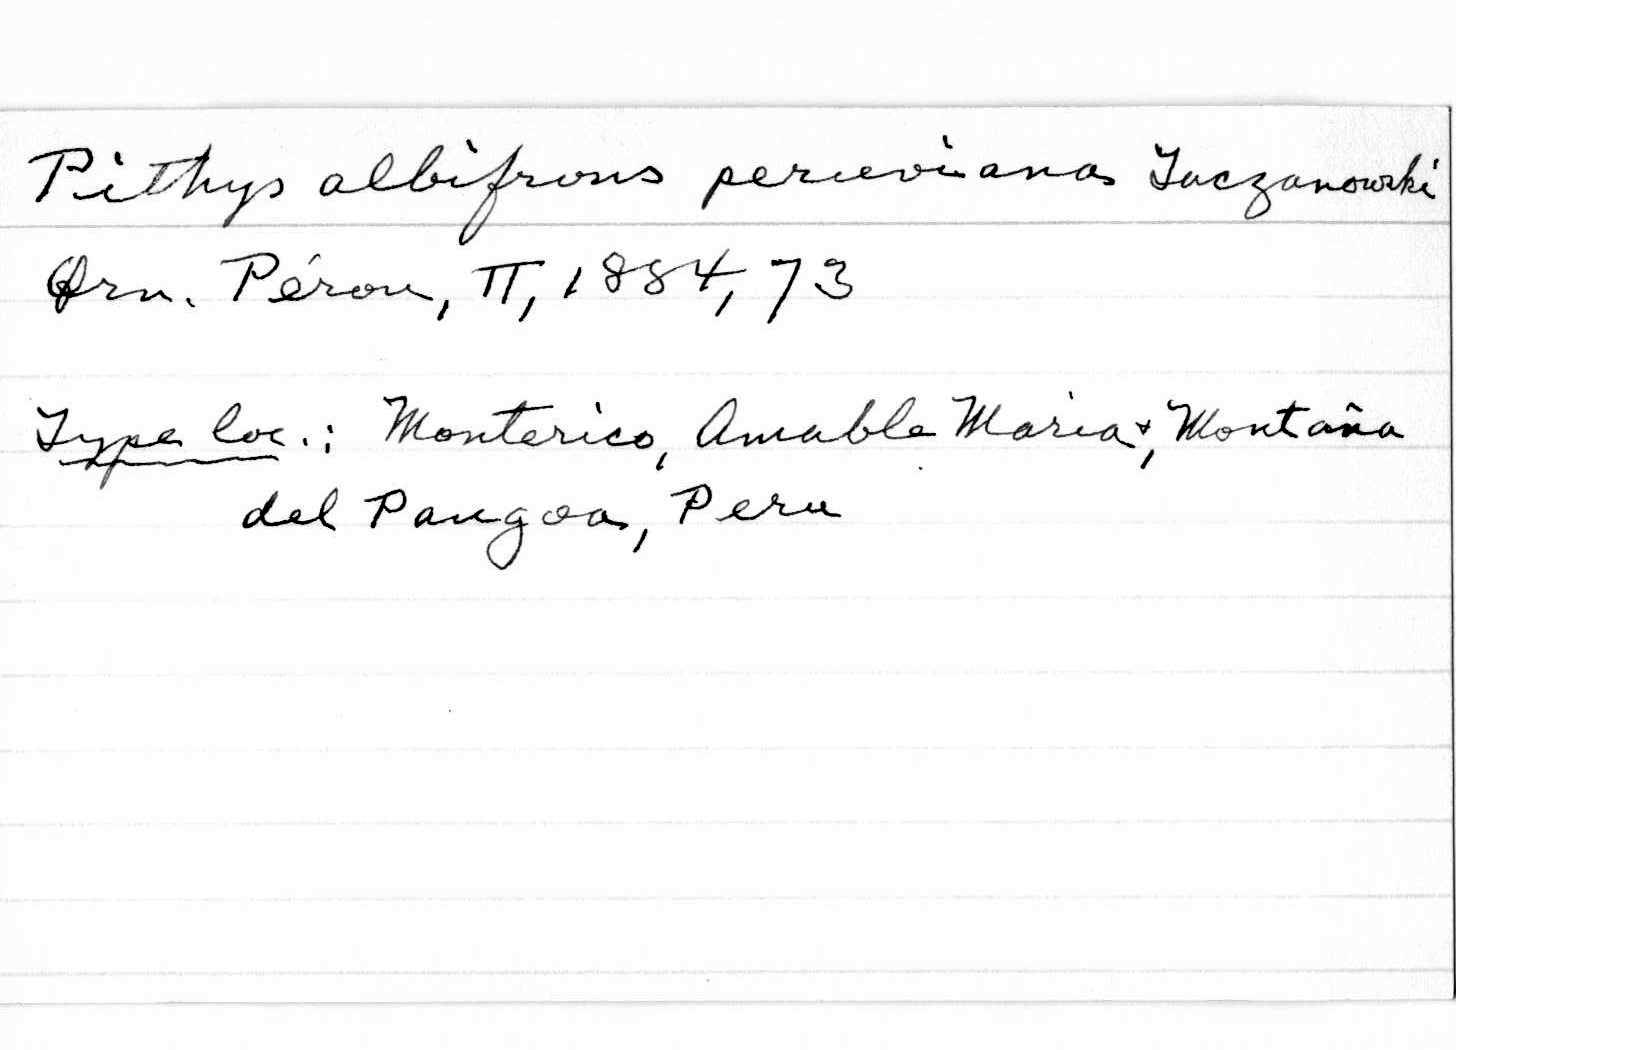 Pithys albifrons peruviana Taczanowski
Orn. Pérou, II, 1884, 73
Type loc.: Monterico, Amable Maria &, Montaña
del Pangoa, Peru